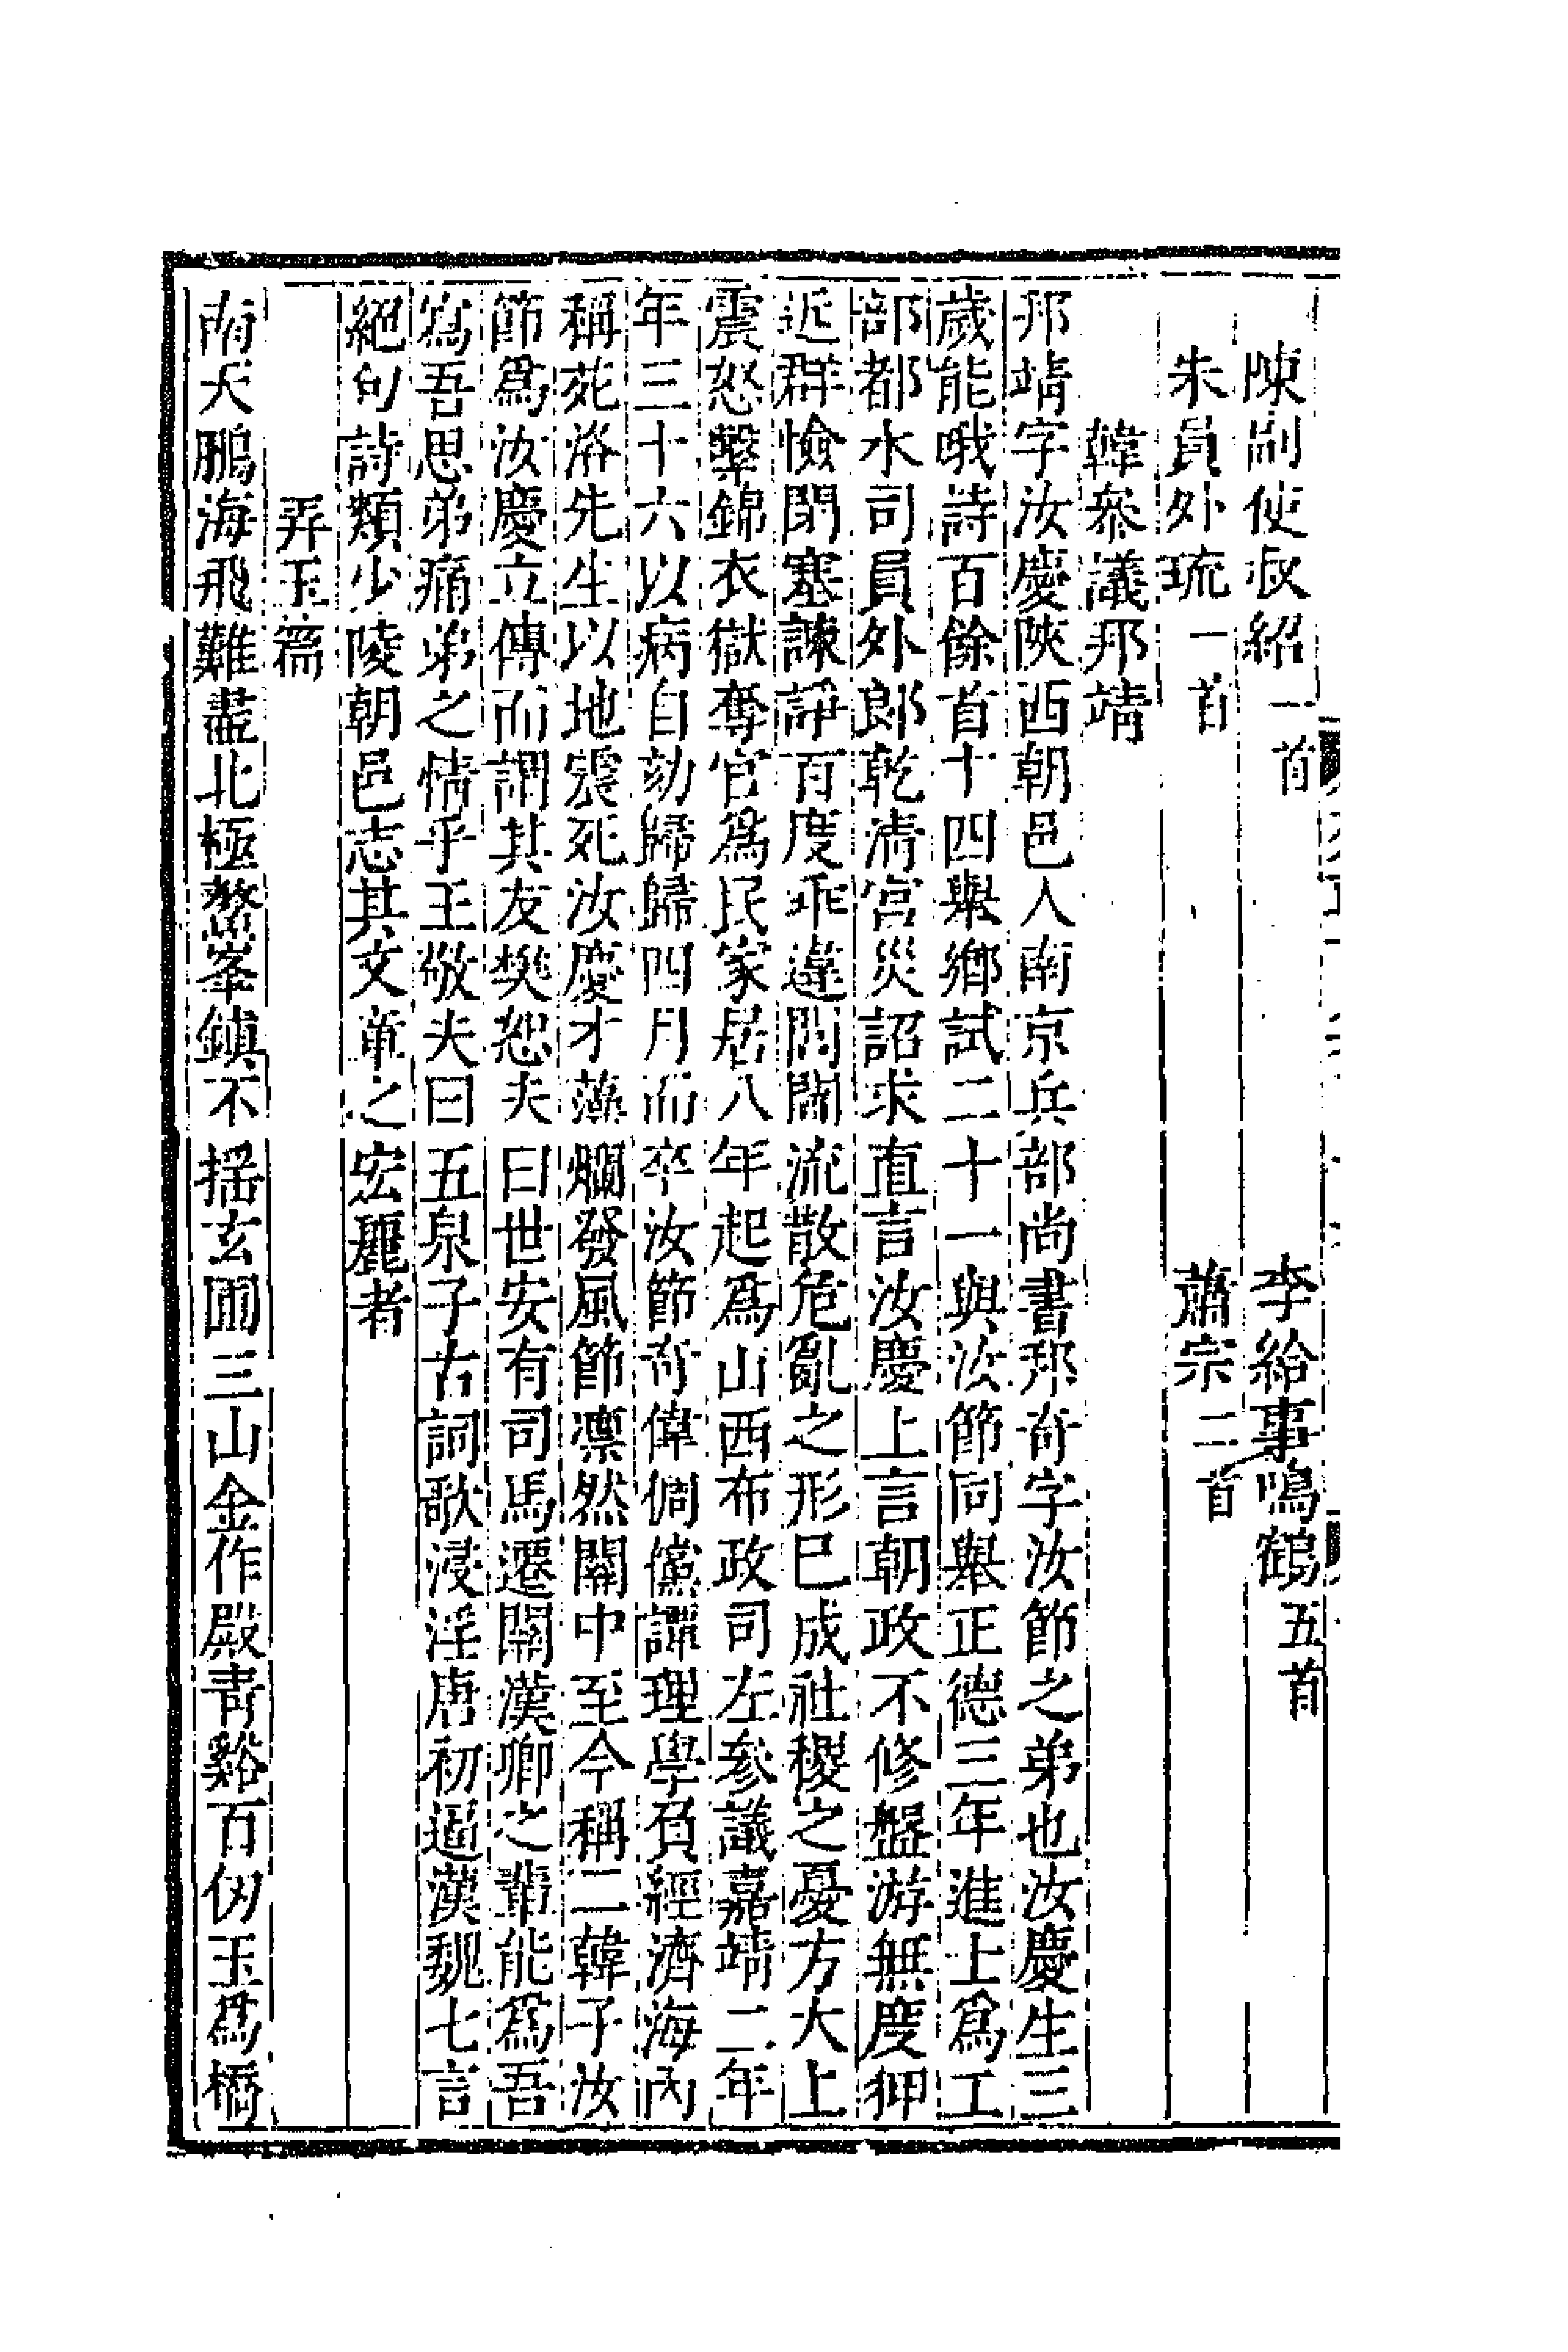 陳副使叔紹一首　李給事鳴鶴五首
朱員外琉一首　蕭宗二首
韓叅議邦靖
邦靖字汝慶陝西朝邑人南京兵部尚書邦奇字汝節之弟也汝慶生三
歲能哦詩百餘首十四舉鄉試二十一與汝節同舉正德三年進士爲工
部都水司員外郎乾清宮災詔求直言汝慶上言朝政不修盤游無度狎
近群憸閉塞諫諍百度乖違閭閻流散危亂之形巳成社稷之憂方大上
震怒繫錦衣獄奪官爲民家居八年起爲山西布政司左參議嘉靖二年
年三十六以病自劾歸歸四月而卒汝節奇偉倜儻譚理學負經濟海內
稱苑洛先生以地震死汝慶才藻爛發風節凛然關中至今稱二韓子汝
節爲汝慶立傳而謂其友樊恕夫曰世安有司馬遷關漢卿之輩能爲吾
寫吾思弟痛弟之情乎王敬夫曰五泉子古詞歌浸淫唐初逼漢魏七言
絕句詩類少陵朝邑志其文章之宏麗者
弄玉篇
南天鵬海飛難盡北極鰲峯鎮不揺玄圃三山金作殿青谿百仞玉爲橋